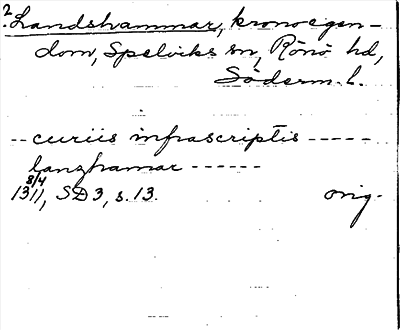 ? Landshammar, kronoegen-
dom, Spelviks sn, Rönö hd,
Söderm. l.
-- curiis infrascriptis -----
lanzhamar ------
8/4
1311, SD3, s. 13. orig.